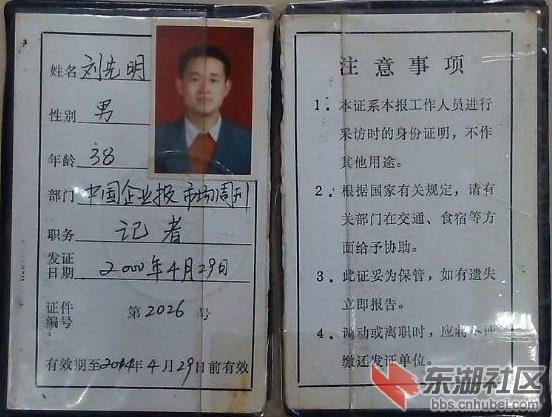 姓名 刘先明
性别 男
年龄 38
部门 中国企业报市场周刊
职务 记者
发证
日期 2000年4月29日
证件
编号 第2026号
有效期至2004年4月29日前有效
注意事项
1．本证系本报工作人员进行
采访时的身份证明，不作
其他用途。
2．根据国家有关规定，请有
关部门在交通、食宿等方
面给予协助。
3．此证妥为保管，如有遗失
立即报告。
4．调动或离职时，应将
缴还发证单位。
东湖社区
bbs.cnhubei.com